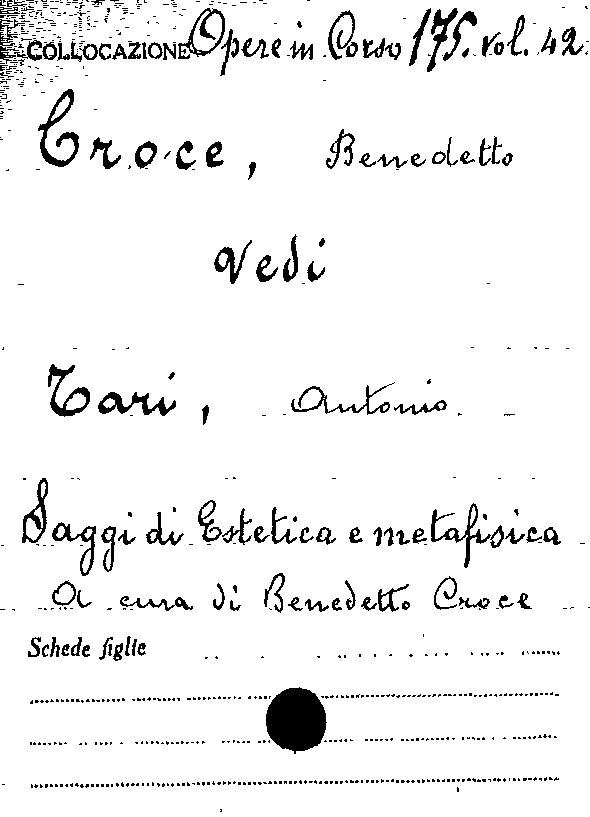 COLLOCAZIONE Opere in Corso 175. vol. 42
Croce, Benedetto
Vedi
Tari, Antonio
Saggi di Estetica e metafisica
A cura di Benedetto Croce
Schede figlie